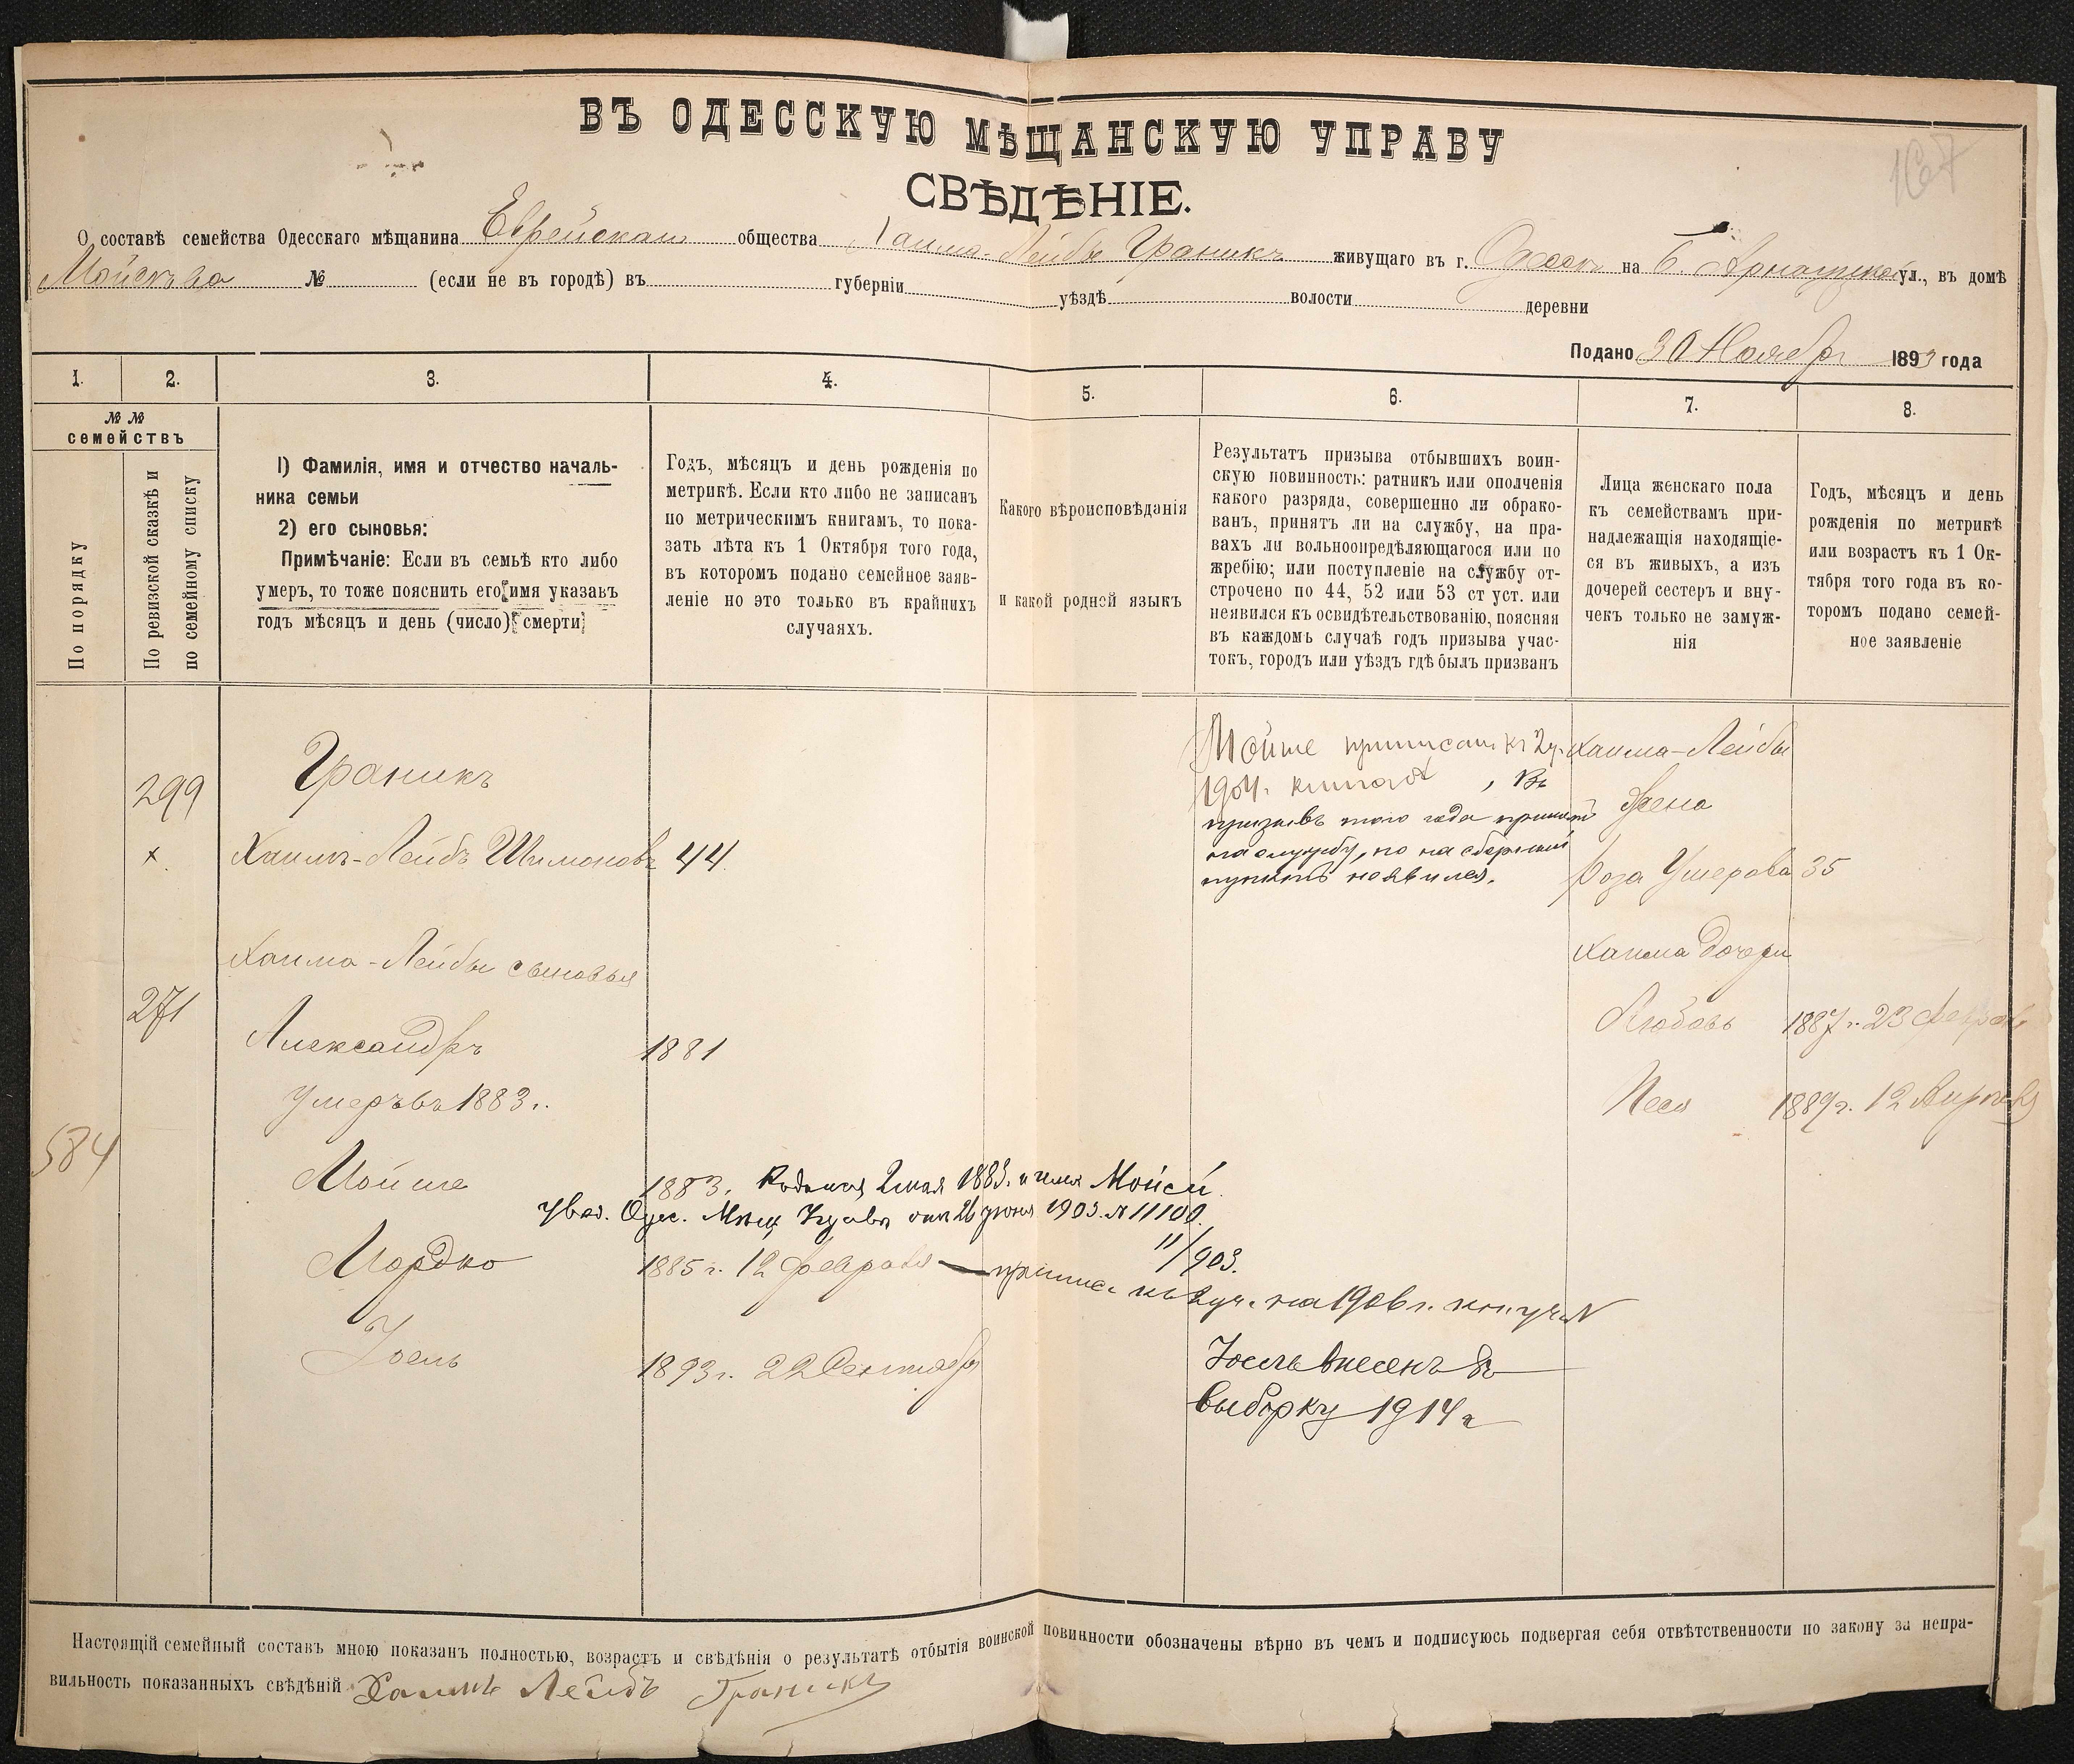 ВЪ ОДЕССКУЮ МѢЩАНСКУЮ УПРАВУ
СВѢДѢНІЕ.
О составѣ семейства Одесскаго мѣщанина Еврейскаго общества Хаима-Лейбы Граникъ живущаго въ г. Одессѣ на Б. Арнаутской ул., въ домѣ
№ (если не въ городѣ) въ губерніи уѣздѣ волости деревни
Подано 30 Ноября 1893 года
1. 2. 3. 4. 5. 6. 7. 8.
№ №
семействъ
По порядку
По ревизской сказкѣ и
по семейному списку
1) Фамилія, имя и отчество началь-
ника семьи
2) его сыновья:
Примѣчаніе: Если въ семьѣ кто либо
умеръ, то тоже пояснить его имя указавъ
годъ мѣсяцъ и день (число) смерти
Годъ, мѣсяцъ и день рожденія по
метрикѣ. Если кто либо не записанъ
по метрическимъ книгамъ, то пока-
зать лѣта къ 1 Октября того года,
въ которомъ подано семейное заяв-
леніе но это только въ крайнихъ
случаяхъ.
Какого вѣроисповѣданія
и какой родной языкъ
Результатъ призыва отбывшихъ воин-
скую повинность: ратникъ или ополченія
какого разряда, совершенно ли обрако-
ванъ, принятъ ли на службу, на пра-
вахъ ли вольноопредѣляющагося или по
жребію; или поступленіе на службу от-
строчено по 44, 52 или 53 ст уст. или
неявился къ освидѣтельствованію, поясняя
въ каждомъ случаѣ годъ призыва учас-
токъ, городъ или уѣздъ гдѣ былъ призванъ
Лица женскаго пола
къ семействамъ при-
надлежащія находящіе-
ся въ живыхъ, а изъ
дочерей сестеръ и вну-
чекъ только не замуж-
нія
Годъ, мѣсяцъ и день
рожденія по метрикѣ
или возрастъ къ 1 Ок-
тября того года въ ко-
торомъ подано семей-
ное заявленіе
299
Граникъ
Хаимъ-Лейбъ Шимоновъ 44
Хаима-Лейбы сыновья
271
Александръ 1881
Умеръ въ 1883 г.
584
Мойше 1883. Родился 2 мая 1883. и имя Мойсей.
увед. Одес. Мѣщ. Управы отъ 26 іюня 1903. № 11100.
11/903.
Мордко 1885 г. 12 Февраля — приписс. къ 2 уч. на 1906 г.
Іосль 1893 г. 22 Сентября
Мойше приписанъ къ 2 уч.
1904 г. , Въ
призывъ того года принятъ
на службу, но на сборный
пунктъ неявился.
Іосль внесенъ въ
выборку 1914 г
Хаима-Лейбы
жена
Роза Ушерова 35
Хаима дочери
Любовь 1887 г. 23 Февраля
Песя 1889 г. 12 Апрѣля
Настоящій семейный составъ мною показанъ полностью, возрастъ и свѣдѣнія о результатѣ отбытія воинской повинности обозначены вѣрно въ чемъ и подписуюсь подвергая себя отвѣтственности по закону за непра-
вильность показанныхъ свѣдѣній Хаимъ Лейбъ Граникъ